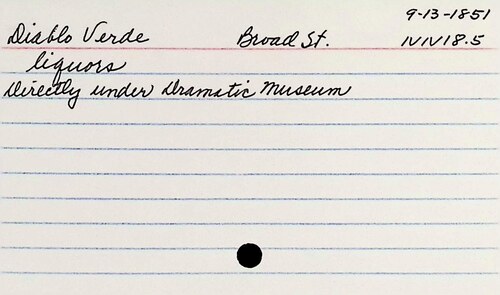 9-13-1851
Diablo Verde Broad St. IVIV18.5
liquors
Directly under Dramatic Museum